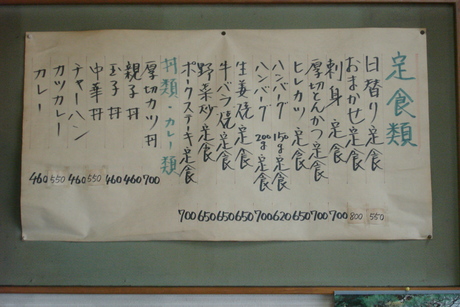 定食類
日替り定食 550
おまかせ定食 800
刺身定食 700
厚切とんかつ定食 700
ヒレカツ定食 650
ハンバーグ 150g 定食 620
ハンバーグ 200g 定食 700
生姜焼定食 650
牛バラ焼定食 650
野菜炒定食 650
ポークステーキ定食 700
丼類・カレー類
厚切カツ丼 700
親子丼 460
玉子丼 460
中華丼 550
チャーハン 460
カツカレー 550
カレー 460